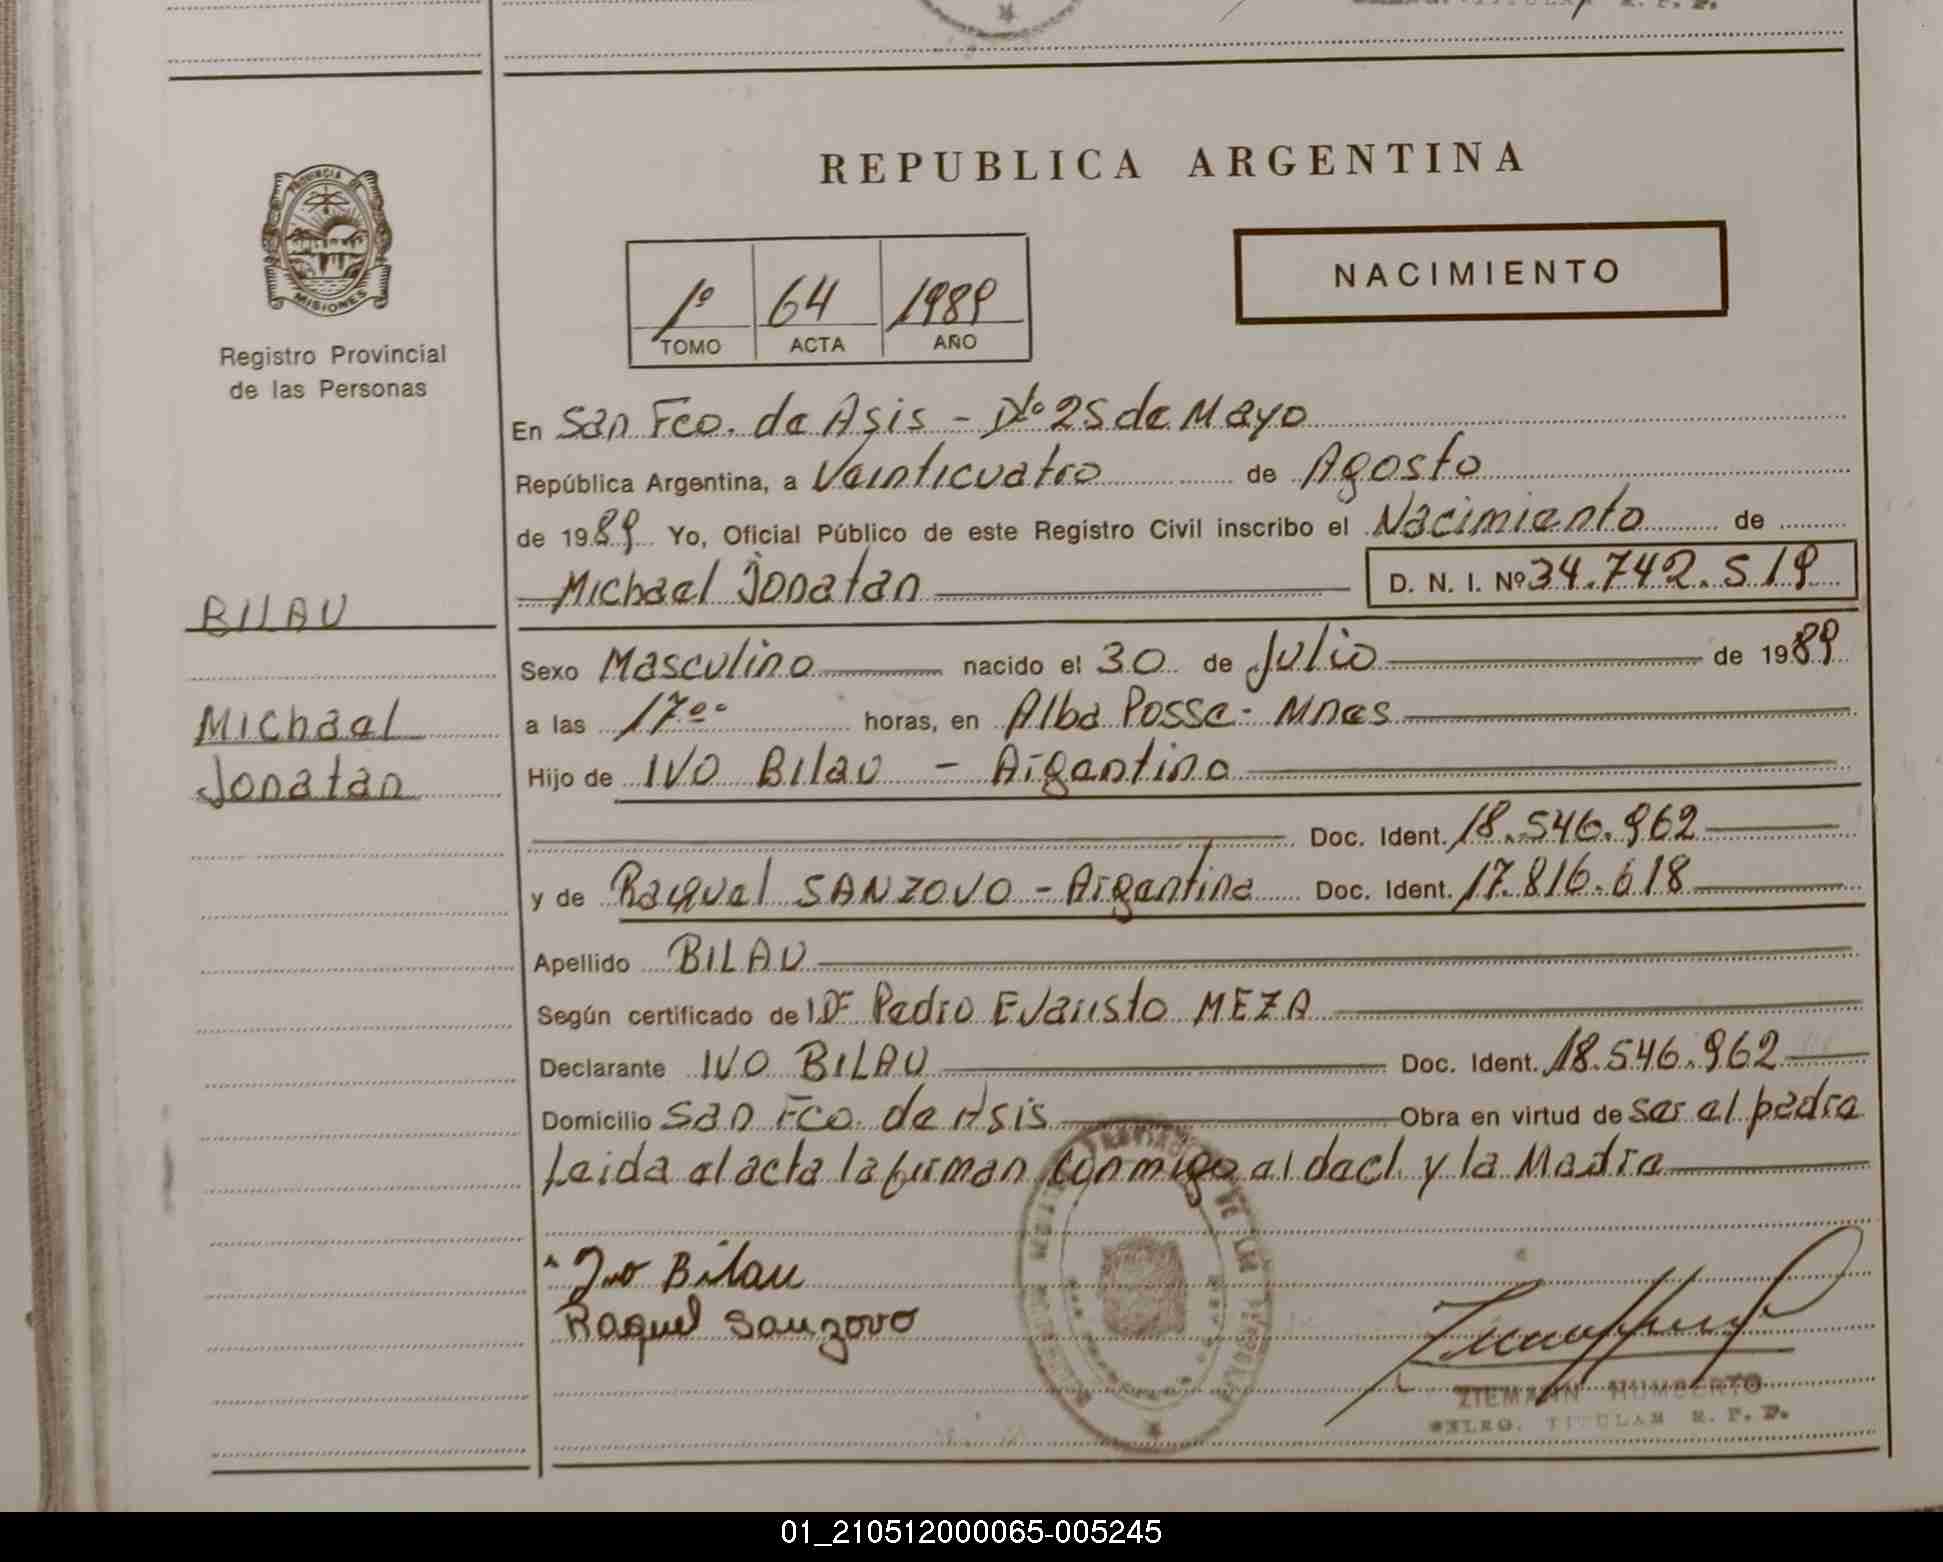 PROVINCIA DE
MISIONES
Registro Provincial
de las Personas
BILAU
Michael
Jonatan
REPUBLICA ARGENTINA
1º 64 1989
TOMO ACTA AÑO
NACIMIENTO
En San Fco. de Asis - Dto 25 de Mayo
República Argentina, a Veinticuatro de Agosto
de 1989 Yo, Oficial Público de este Registro Civil inscribo el Nacimiento de
Michael Jonatan D. N. I. Nº 34.742.519
Sexo Masculino nacido el 30 de Julio de 1989
a las 17ºº horas, en Alba Posse - Mnes
Hijo de IVO Bilau - Argentino
Doc. Ident. 18.546.962
y de Raquel SANZOVO - Argentina Doc. Ident. 17.816.618
Apellido BILAU
Según certificado de Pedro Evaristo MEZA
Declarante IVO BILAU Doc. Ident. 18.546.962
Domicilio San Fco. de Asis Obra en virtud de ser el padre
Leida el acta la firman conmigo el decl. y la Madre
Ivo Bilau
Raquel Sanzovo
ZIEMANN HUMBERTO
TITULAR R. P. P.
01_210512000065-005245